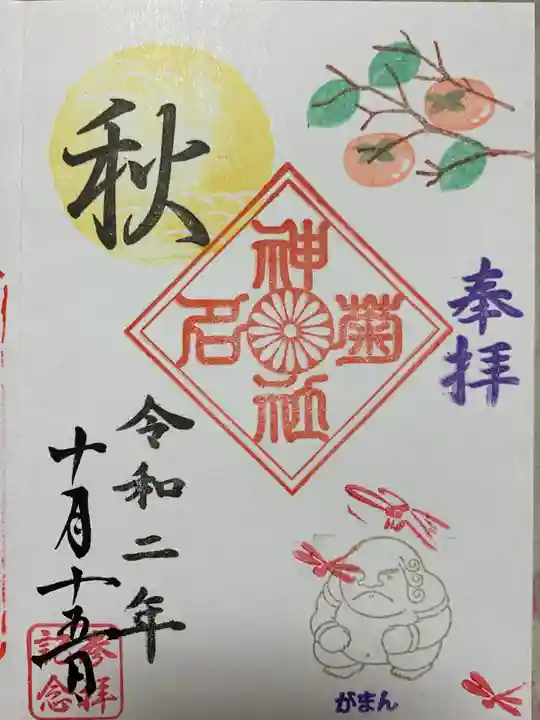 奉拝
菊名神社
秋
令和二年
十月十五日
参拝
記念
がまん